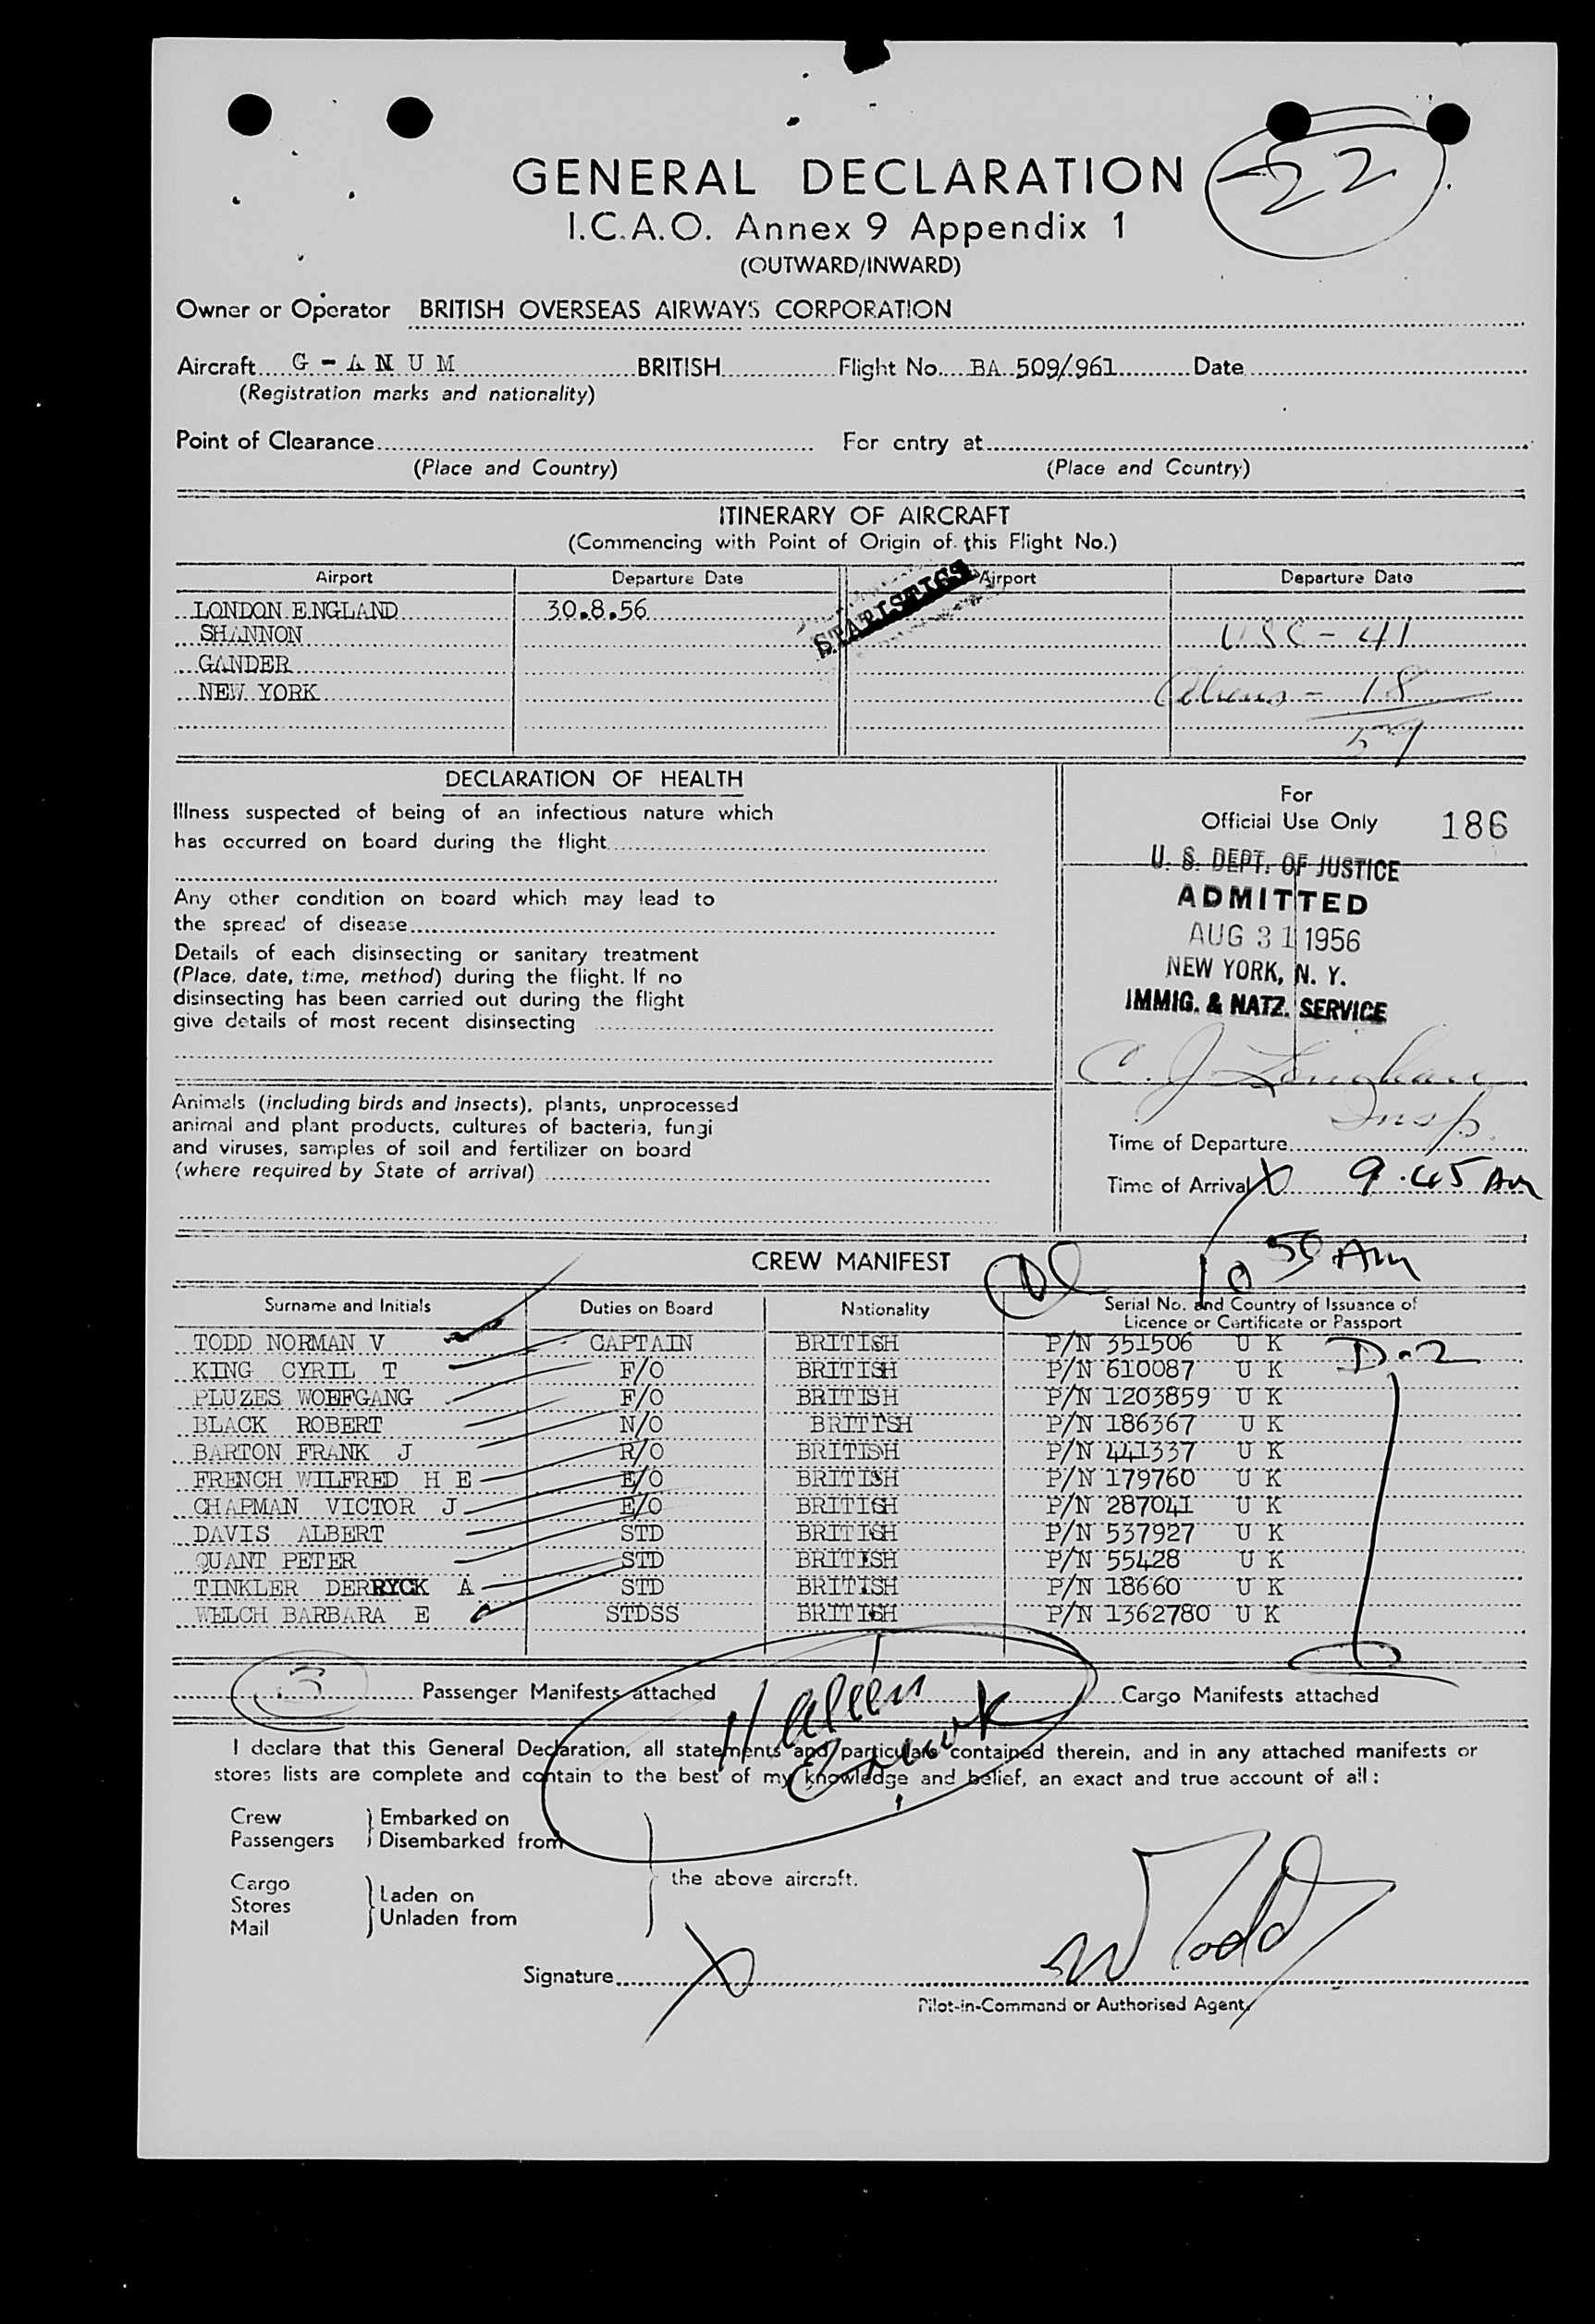 22
GENERAL DECLARATION
I.C.A.O. Annex 9 Appendix 1
(OUTWARD/INWARD)
Owner or Operator BRITISH OVERSEAS AIRWAYS CORPORATION
Aircraft G - A N U M BRITISH Flight No. BA 509/961 Date
(Registration marks and nationality)
Point of Clearance For entry at
(Place and Country) (Place and Country)
ITINERARY OF AIRCRAFT
(Commencing with Point of Origin of this Flight No.)
Airport Departure Date Airport Departure Date
STATISTICS
LONDON ENGLAND 30.8.56
SHANNON USC - 41
GANDER
NEW YORK Aliens - 18
59
DECLARATION OF HEALTH
Illness suspected of being of an infectious nature which
has occurred on board during the flight
Any other condition on board which may lead to
the spread of disease
Details of each disinsecting or sanitary treatment
(Place, date, time, method) during the flight. If no
disinsecting has been carried out during the flight
give details of most recent disinsecting
Animals (including birds and insects), plants, unprocessed
animal and plant products, cultures of bacteria, fungi
and viruses, samples of soil and fertilizer on board
(where required by State of arrival)
For
Official Use Only 186
U. S. DEPT. OF JUSTICE
ADMITTED
AUG 31 1956
NEW YORK, N. Y.
IMMIG. & NATZ. SERVICE
C. J.
Insp.
Time of Departure
Time of Arrival X 9.45 Am
10 50 Am
CREW MANIFEST
Surname and Initials Duties on Board Nationality Serial No. and Country of Issuance of
Licence or Certificate or Passport
TODD NORMAN V CAPTAIN BRITISH P/N 351506 U K D-2
KING CYRIL T F/O BRITISH P/N 610087 U K
PLUZES WOEFGANG F/O BRITISH P/N 1203859 U K
BLACK ROBERT N/O BRITISH P/N 186367 U K
BARTON FRANK J R/O BRITISH P/N 441337 U K
FRENCH WILFRED H E E/O BRITISH P/N 179760 U K
CHAPMAN VICTOR J E/O BRITISH P/N 287041 U K
DAVIS ALBERT STD BRITISH P/N 537927 U K
QUANT PETER STD BRITISH P/N 55428 U K
TINKLER DERRYCK A STD BRITISH P/N 18660 U K
WELCH BARBARA E STDSS BRITISH P/N 1362780 U K
3 Passenger Manifests attached Cargo Manifests attached
11 alien
Crew
I declare that this General Declaration, all statements and particulars contained therein, and in any attached manifests or
stores lists are complete and contain to the best of my knowledge and belief, an exact and true account of all:
Crew Embarked on
Passengers Disembarked from
the above aircraft.
Cargo Laden on
Stores Unladen from
Mail
Signature X N Todd
Pilot-in-Command or Authorised Agent